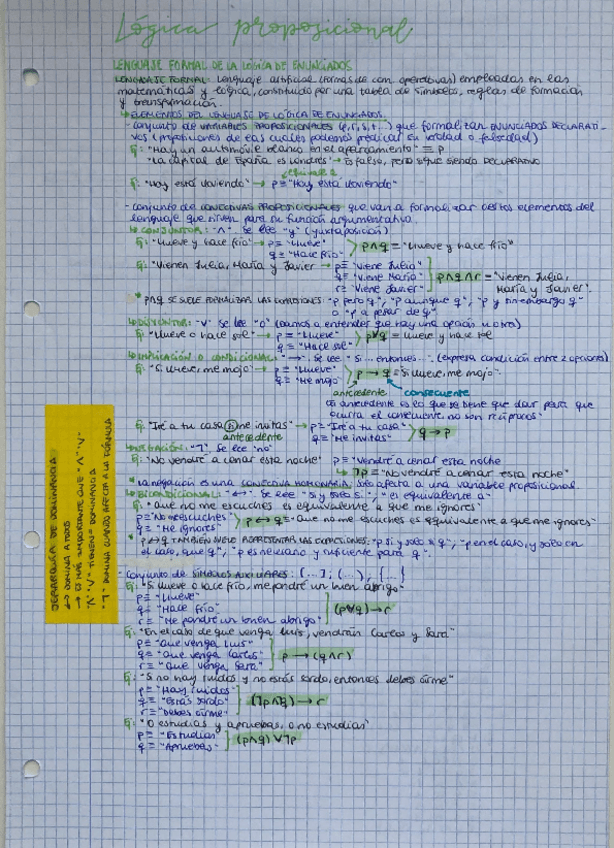 Lógica proposicional
LENGUAJE FORMAL DE LA LÓGICA DE ENUNCIADOS
LENGUAJE FORMAL: Lenguaje artificial (formas de com. operativas) empleadas en las
matemáticas y lógica, constituido por una tabla de símbolos, reglas de formación
y transformación.
↳ ELEMENTOS DEL LENGUAJE DE LÓGICA DE ENUNCIADOS.
- Conjunto de VARIABLES PROPOSICIONALES (p, r, s, t...) que formalizan ENUNCIADOS DECLARATI-
VOS (proposiciones de las cuales podemos predicar su verdad o falsedad)
Ej: "Hay un automóvil blanco en el aparcamiento" ≡ p
"La capital de España es Londres" → Es falso, pero sigue siendo DECLARATIVO
equivale a
Ej: "Hoy está lloviendo" → p ≡ "Hoy está lloviendo"
- Conjunto de CONECTIVAS PROPOSICIONALES que van a formalizar ciertos elementos del
lenguaje que sirven para su función argumentativa.
↳ CONJUNTOR: "∧". Se lee "y" (yuxtaposición)
Ej: "Llueve y hace frío" → p = "Llueve"
q = "Hace frío" p∧q = "Llueve y hace frío"
Ej: "Vienen Julia, María y Javier → p = "Viene Julia"
q = "Viene María" p∧q∧r = "Vienen Julia,
r = "Viene Javier" María y Javier".
* p∧q SE SUELE FORMALIZAR LAS CONEXIONES: "p pero q", "p aunque q", "p y sin embargo q"
o "p a pesar de q"
↳ DISYUNTOR: "∨" Se lee "o" (damos a entender que hay una opción u otra)
Ej: "Llueve o hace sol" → p = "Llueve"
q = "Hace sol" p∨q = Llueve y hace sol
↳ IMPLICACIÓN O CONDICIONAL: "→". Se lee "Si... entonces..." (expresa condición entre 2 opciones)
Ej: "Si llueve, me mojo" → p = "Llueve"
q = "Me mojo" p → q = "Si llueve, me mojo"
antecedente consecuente
antecedente es lo que se tiene que dar para que
ocurra el consecuente no son recíprocos
Ej: "Iré a tu casa si me invitas" → p = "Iré a tu casa"
antecedente q = "Me invitas" q → p
↳ NEGACIÓN: "¬". Se lee "no"
Ej: "No vendré a cenar esta noche" p = "Vendré a cenar esta noche
↳ ¬p = "No vendré a cenar esta noche"
* La negación es una CONECTIVA MONARIA: sólo afecta a una variable proposicional.
↳ BICONDICIONAL: "↔". Se lee "Si y sólo si", "es equivalente a"
Ej: "Que no me escuches, es equivalente a que me ignores"
p = "No me escuches"
q = "Me ignores" p ↔ q = Que no me escuches es equivalente a que me ignores
* p ↔ q TAMBIÉN SUELE REPRESENTAR LAS CONEXIONES: "p si y sólo si q", "p en el caso, y sólo en
el caso, que q", "p es necesario y suficiente para q".
- Conjunto de SÍMBOLOS AUXILIARES: (...); (...), {...}
Ej: "Si llueve o hace frío, me pondré un buen abrigo"
p = "Llueve"
q = "Hace frío" (p∨q) → r
r = "Me pondré un buen abrigo
Ej: "En el caso de que venga Luis, vendrán Carlos y Sara"
p = "Que venga Luis"
q = "Que venga Carlos" p → (q∧r)
r = "Que venga Sara"
Ej: "Si no hay ruidos y no estás sordo, entonces debes oírme"
p = "Hay ruidos"
q = "Estás sordo" (¬p∧¬q) → r
r = "Debes oírme"
Ej: "O estudias y apruebas, o no estudias"
p = "Estudias"
q = "Apruebas" (p∧q) ∨ ¬p
JERARQUÍA DE DOMINANCIA:
↔ DOMINA A TODOS
→ ES MÁS IMPORTANTE QUE "∧", "∨"
"∧", "∨" TIENEN = DOMINANCIA
"¬" DOMINA CUANDO AFECTA A LA FÓRMULA